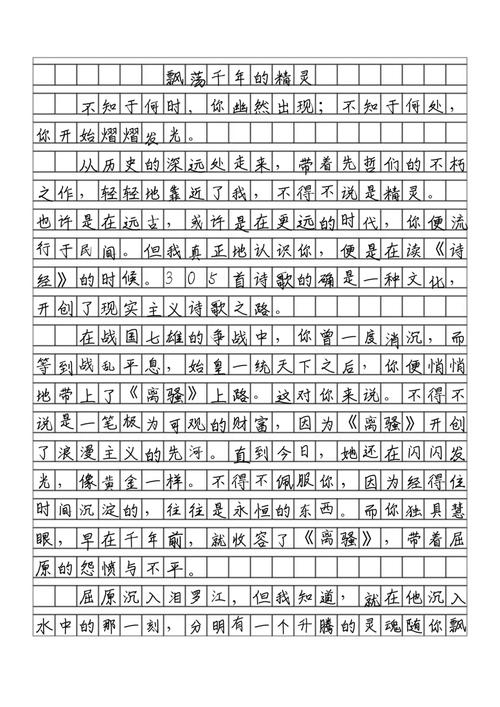 飘荡千年的精灵
不知于何时，你幽然出现；不知于何处，
你开始熠熠发光。
从历史的深远处走来，带着先哲们的不朽
之作，轻轻地靠近了我，不得不说是精灵。
也许是在远古，或许是在更远的时代，你便流
行于民间。但我真正地认识你，便是在读《诗
经》的时候。305首诗歌的确是一种文化，
开创了现实主义诗歌之路。
在战国七雄的争战中，你曾一度消沉，而
等到战乱平息，始皇一统天下之后，你便悄悄
地带上了《离骚》上路。这对你来说。不得不
说是一笔极为可观的财富，因为《离骚》开创
了浪漫主义的先河。直到今日，她还在闪闪发
光，像黄金一样。不得不佩服你，因为经得住
时间沉淀的，往往是永恒的东西。而你独具慧
眼，早在千年前，就收容了《离骚》，带着屈
原的怨愤与不平。
屈原沉入汨罗江，但我知道，就在他沉入
水中的那一刻，分明有一个升腾的灵魂随你飘